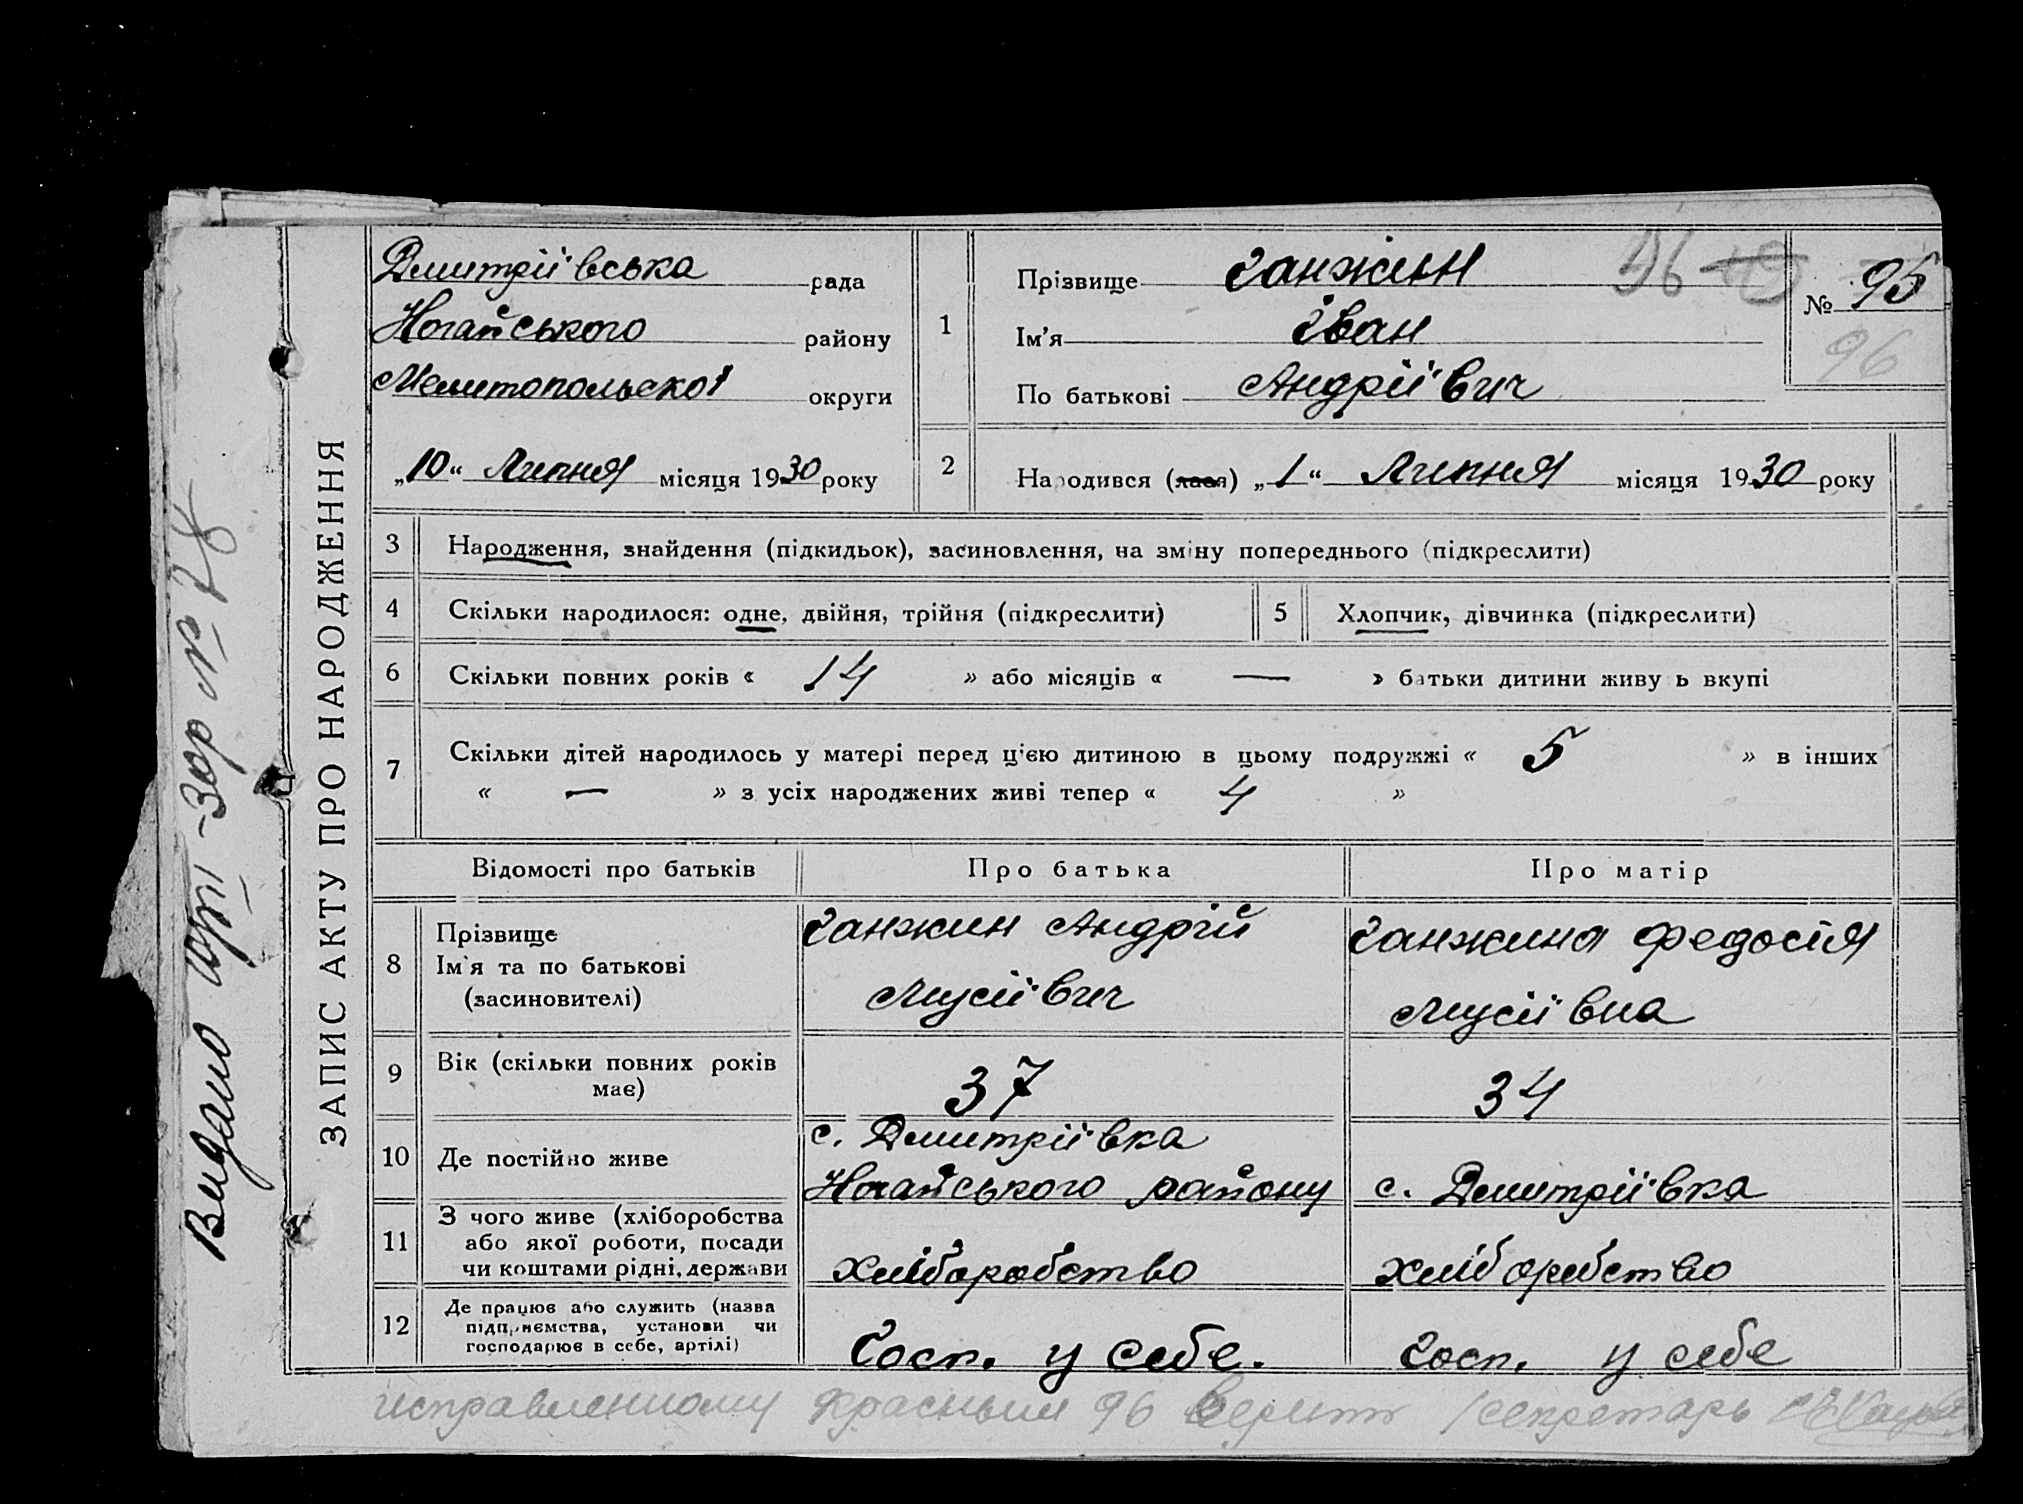 Дмитріївська рада
Ногайського району
Мелитопольскої округи
„10“ Липня місяця 1930 року
1
Прізвище Ганжин
Ім'я Іван
По батькові Андріївич
96
№ 95
96
2
Народився (лася) „1“ Липня місяця 1930 року
ЗАПИС АКТУ ПРО НАРОДЖЕННЯ
Видано юрт-Зор № 78
3 Народження, знайдення (підкидьок), засиновлення, на зміну попереднього (підкреслити)
4 Скільки народилося: одне, двійня, трійня (підкреслити)
5 Хлопчик, дівчинка (підкреслити)
6 Скільки повних років « 14 » або місяців « — » батьки дитини живуть вкупі
7 Скільки дітей народилось у матері перед ц'єю дитиною в цьому подружжі « 5 » в інших
« — » з усіх народжених живі тепер « 4 »
Відомості про батьків Про батька Про матір
8 Прізвище
Ім'я та по батькові
(засиновителі)
Ганжин Андрій
Мусіївич
Ганжина Федосія
Мусіївна
9 Вік (скільки повних років
має)
37
34
10 Де постійно живе
с. Дмитріївка
Ногайського району
с. Дмитріївка
11 З чого живе (хліборобства
або якої роботи, посади
чи коштами рідні, держави
хліборобство
хліборобство
12 Де працює або служить (назва
підприємства, установи чи
господарює в себе, артілі)
Госп. у себе.
Госп. у себе
исправленному красным 96 верить секретарь